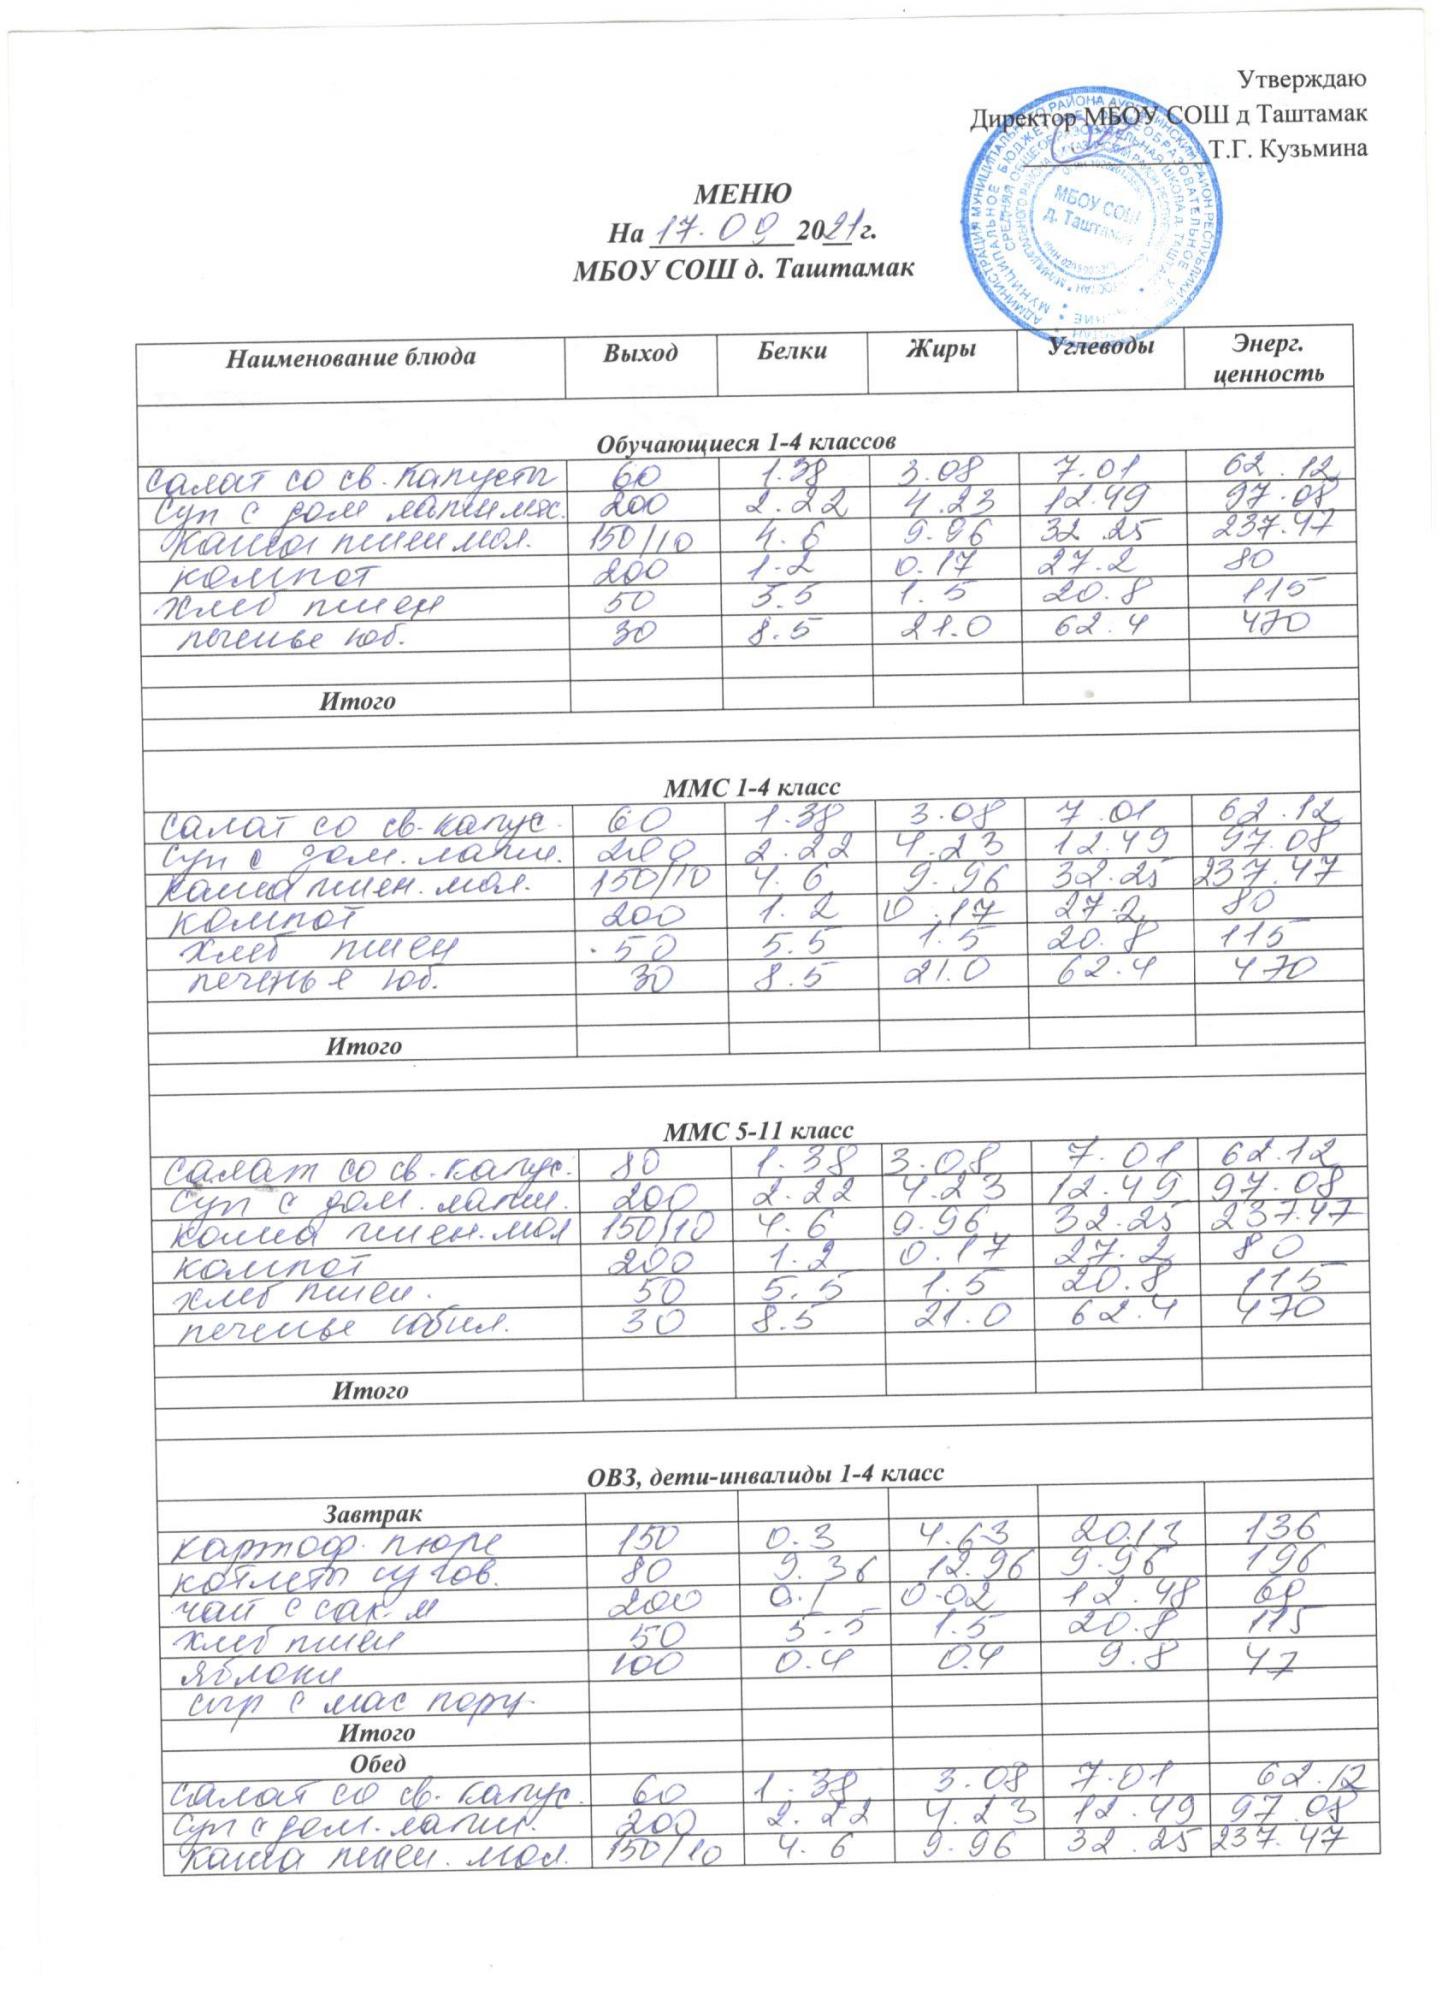 Утверждаю
Директор МБОУ СОШ д Таштамак
Т.Г. Кузьмина
МБОУ СОШ
д. Таштамак
МЕНЮ
На 17.09 2021 г.
МБОУ СОШ д. Таштамак
Наименование блюда Выход Белки Жиры Углеводы Энерг. ценность
Обучающиеся 1-4 классов
салат со св. капусты 60 1.38 3.08 7.01 62.12
суп с дом 200 2.22 4.23 12.49 97.08
каша пшен мол. 150/10 4.6 9.96 32.25 237.47
компот 200 1.2 0.17 27.2 80
хлеб пшен 50 5.5 1.5 20.8 115
печенье юб. 30 8.5 21.0 62.4 470
Итого
ММС 1-4 класс
салат со св. капус. 60 1.38 3.08 7.01 62.12
суп с дом. лапш. 200 2.22 4.23 12.49 97.08
каша пшен. мол. 150/10 4.6 9.96 32.25 237.47
компот 200 1.2 0.17 27.2 80
хлеб пшен 50 5.5 1.5 20.8 115
печенье юб. 30 8.5 21.0 62.4 470
Итого
ММС 5-11 класс
салат со св. капус. 80 1.38 3.08 7.01 62.12
суп с дом. лапш. 200 2.22 4.23 12.49 97.08
каша пшен. мол 150/10 4.6 9.96 32.25 237.47
компот 200 1.2 0.17 27.2 80
хлеб пшен. 50 5.5 1.5 20.8 115
печенье юбил. 30 8.5 21.0 62.4 470
Итого
ОВЗ, дети-инвалиды 1-4 класс
Завтрак
картоф. пюре 150 0.3 4.63 20.13 136
котлеты 80 9.36 12.96 9.96 196
чай с сах-м 200 0.1 0.02 12.48 60
хлеб пшен 50 5.5 1.5 20.8 115
яблоки 100 0.4 0.4 9.8 47
сыр с мас порц.
Итого
Обед
салат со св. капус. 60 1.38 3.08 7.01 62.12
суп с дом. лапш. 200 2.22 4.23 12.49 97.08
каша пшен. мол. 150/10 4.6 9.96 32.25 237.47